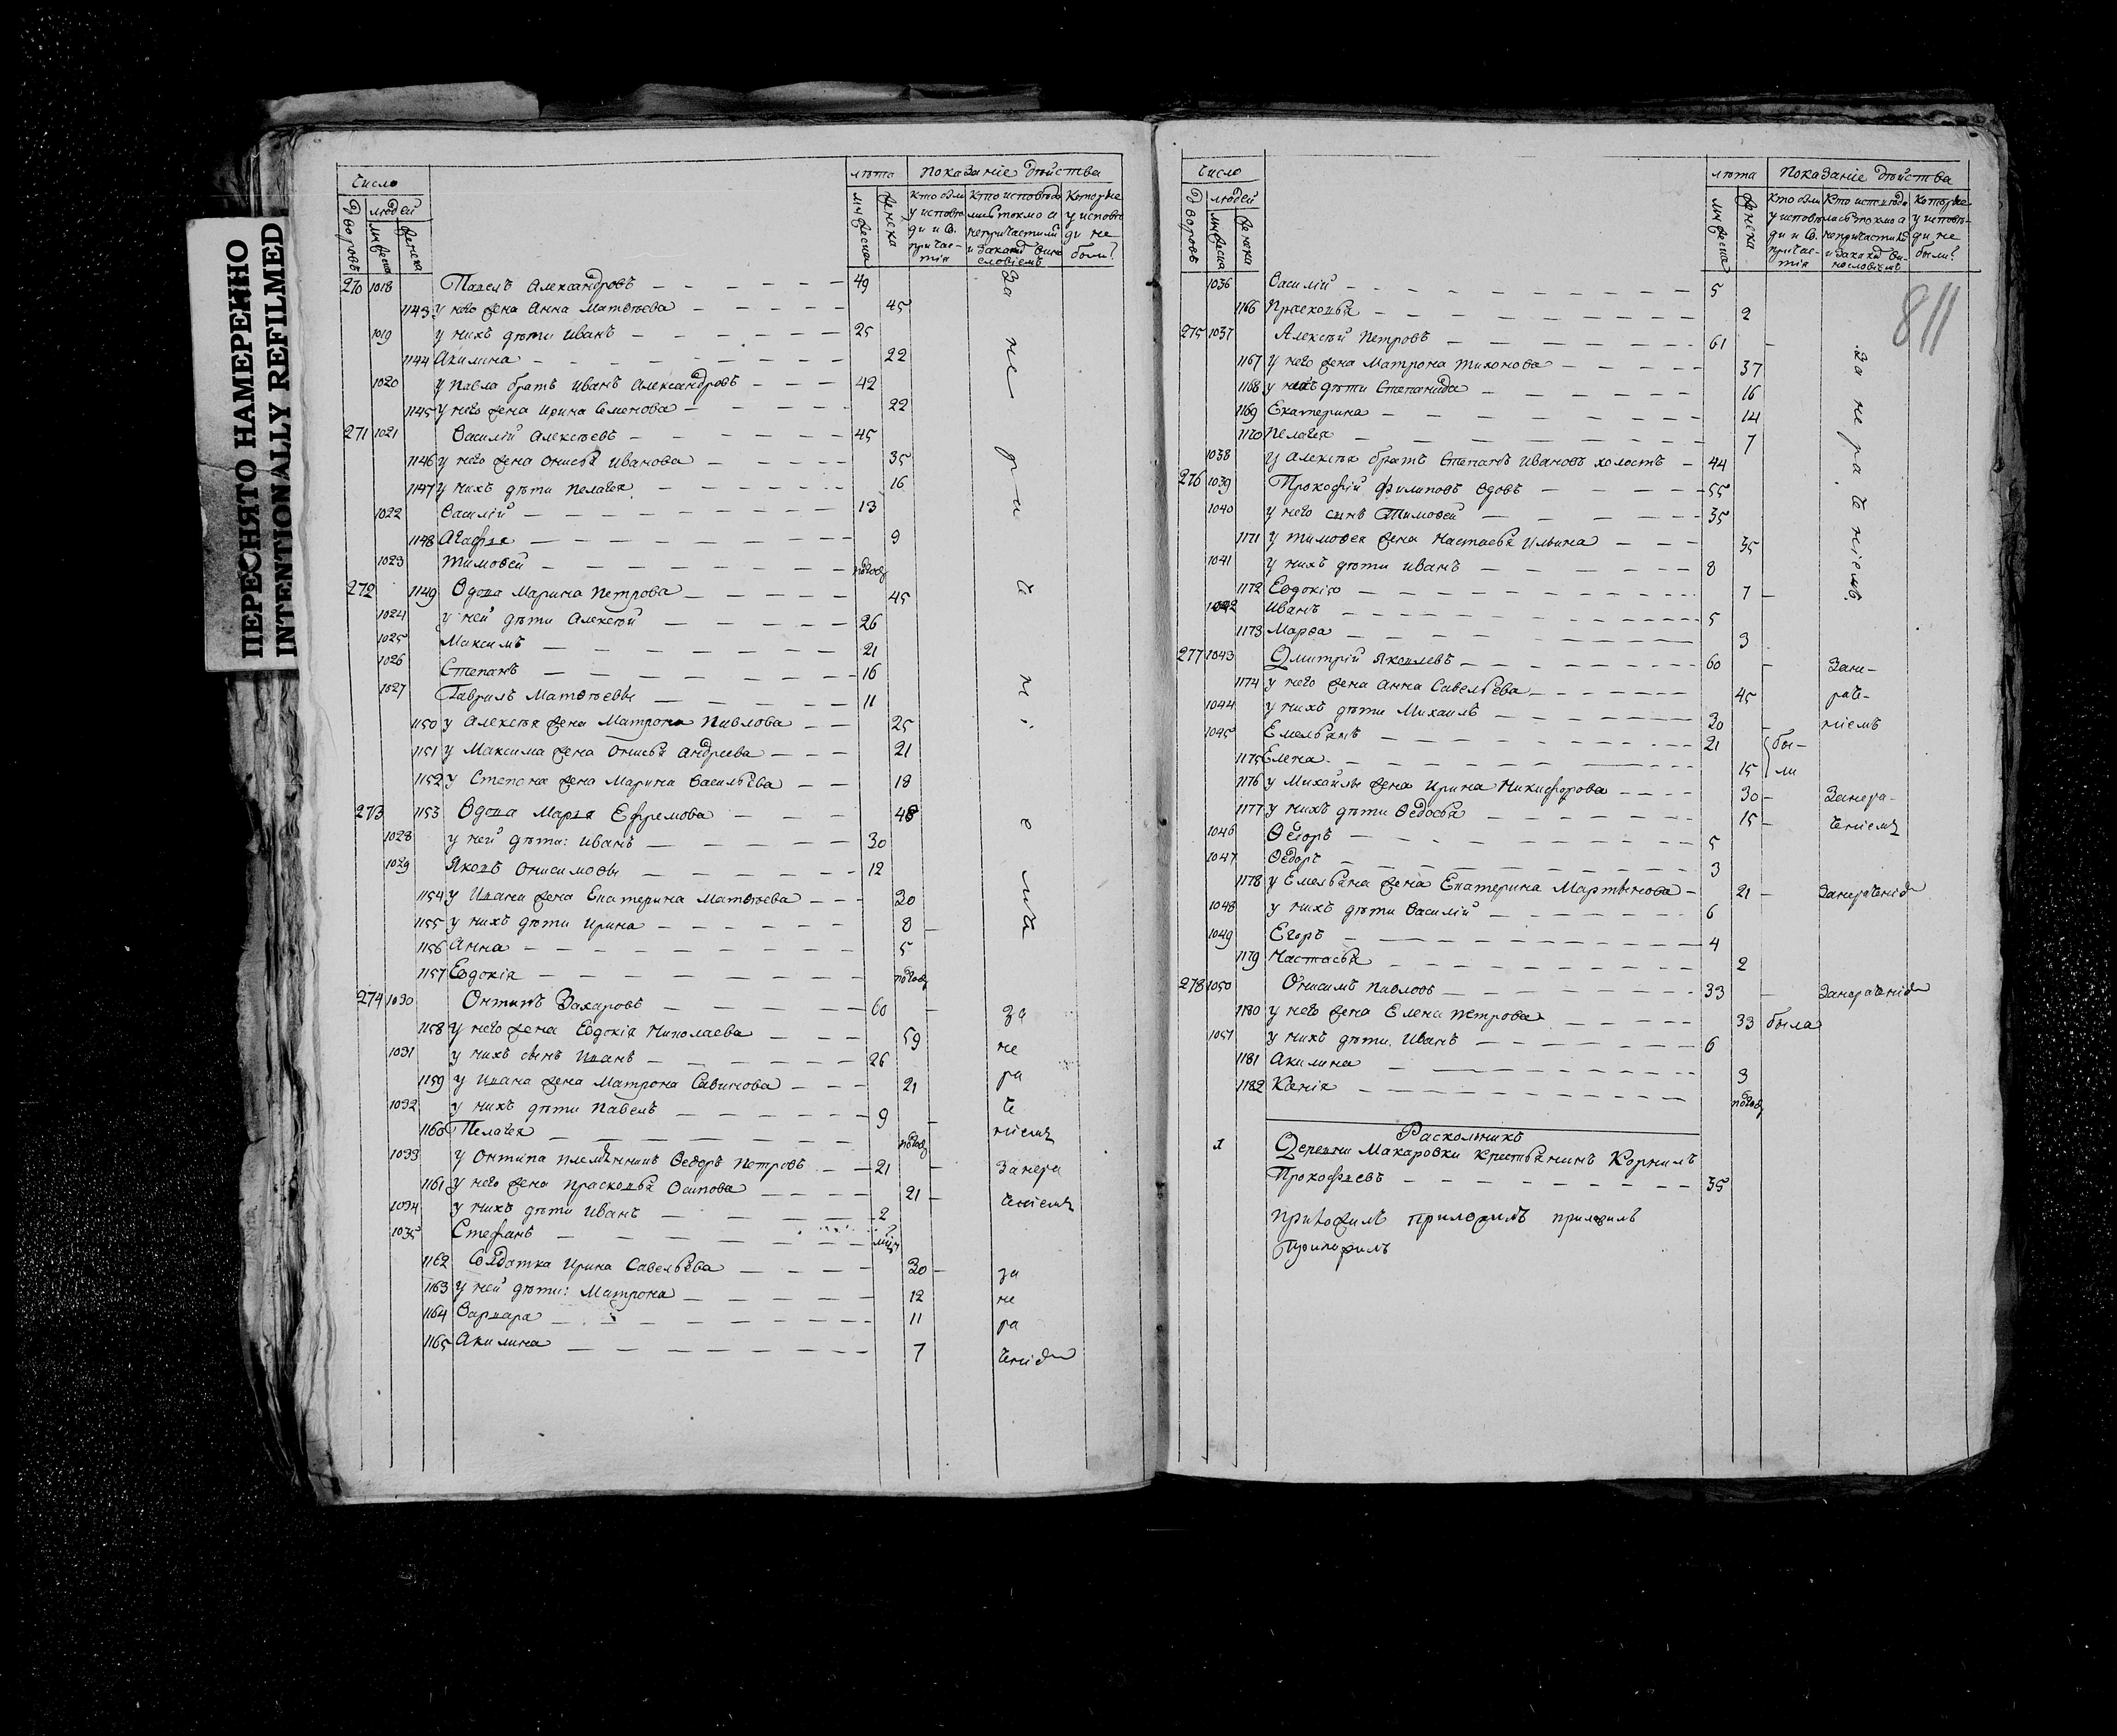 ПЕРЕСНЯТО НАМЕРЕННО
INTENTIONALLY REFILMED
Число
лѣта
Показаніе дѣйства
дворовъ
людей
мужеска
женска
мужеска
женска
кто были у исповѣди и Св. причастія
кто исповѣдались токмо а непричастились и закакимъ винословіемъ
которые у исповѣди не были?
270 1018 Павелъ Александровъ 49
1143 у него жена Анна Матвѣева 45
1019 у нихъ дѣти Иванъ 25
1144 Акилина 22
1020 у Павла братъ Иванъ Александровъ 42
1145 у него жена Ирина Семенова 22
271 1021 Василій Алексѣевъ 45
1146 у него жена Онисья Иванова 35
1147 у нихъ дѣти Пелагея 16
1022 Василій 13
1148 Агафья 9
1023 Тимофей полгод
272 1149 Вдова Марина Петрова 45
1024 у ней дѣти Алексѣй 26
1025 Максимъ 21
1026 Степанъ 16
1027 Гаврилъ Матвѣевы 11
1150 у Алексѣя жена Матрона Павлова 25
1151 у Максима жена Онисья Андреева 21
1152 у Степана жена Марина Васильева 18
273 1153 Вдова Марѳа Ефремова 48
1028 у ней дѣти: Иванъ 30
1029 Яковъ Онисимовы 12
1154 у Ивана жена Екатерина Матвѣева 30
1155 у нихъ дѣти Ирина 8
1156 Анна 5
1157 Евдокія полгод
За не ра че ні е мъ
274 1030 Онтипъ Захаровъ 60 за
1158 у него жена Евдокія Николаева 59 не
1031 у нихъ сынъ Иванъ 26
1159 у Ивана жена Матрона Савинова 21 ра
1032 у нихъ дѣти Павелъ 9 че
1160 Пелагея полгод ніемъ
1033 у Онтипа племянникъ Ѳедоръ Петровъ 21 Занера
1161 у него жена Прасковья Осипова 21 ченіемъ
1034 у нихъ дѣти Иванъ 2
1035 Стефанъ
1162 Солдатка Ирина Савельева 30 за
1163 у ней дѣти: Матрона 12 не
1164 Варвара 11 ра
1165 Акилина 7 ченіе
811
Число
лѣта
Показаніе дѣйства
дворовъ
людей
мужеска
женска
мужеска
женска
кто были у исповѣди и Св. причастія
Кто исповѣдались токмо а непричастились и закакимъ виннословіемъ
которые у исповѣди не были?
1036 Василій 5
1166 Прасковья 2
275 1037 Алексѣй Петровъ 61
1167 у него жена Матрона Тихонова 37
1168 у нихъ дѣти Степанида 16
1169 Екатерина 14
1170 Пелагея 7
1038 у Алексѣя братъ Степанъ Ивановъ холостъ 44
276 1039 Прокофій Филиповъ вдовъ 55
1040 у него сынъ Тимофей 35
1171 у Тимофея жена Настасья Ильина 35
1041 у нихъ дѣти Иванъ 8
1172 Евдокію 7
1042 Иванъ 5
1173 Марѳа 3
за не ра че ніемъ
277 1043 Дмитрій Яковлевъ 60 Зане-
1174 у него жена Анна Савельева 45 раче-
1044 у нихъ дѣти Михаилъ 30 ніемъ
1045 Емельянъ 21 бы-
1175 Елена 15 ли
1176 у Михайлы жена Ирина Никифорова 30 Занера-
1177 у нихъ дѣти Ѳедосья 15 ченіемъ
1046 Ѳегоръ 5
1047 Ѳедоръ 3
1178 у Емельяна жена Екатерина Мартынова 21 Занерачение
1048 у нихъ дѣти Василій 6
1049 Егоръ 4
1179 Настасья 2
278 1050 Онисимъ Павловъ 33 Занерачение
1180 у него жена Елена Петрова 33 была
1051 у нихъ дѣти Иванъ 6
1181 Акилина 3
1182 Ксенія полгод
Раскольникъ
1 Деревни Макаровки Крестьянинъ Корнилъ
Прокофьевъ 35